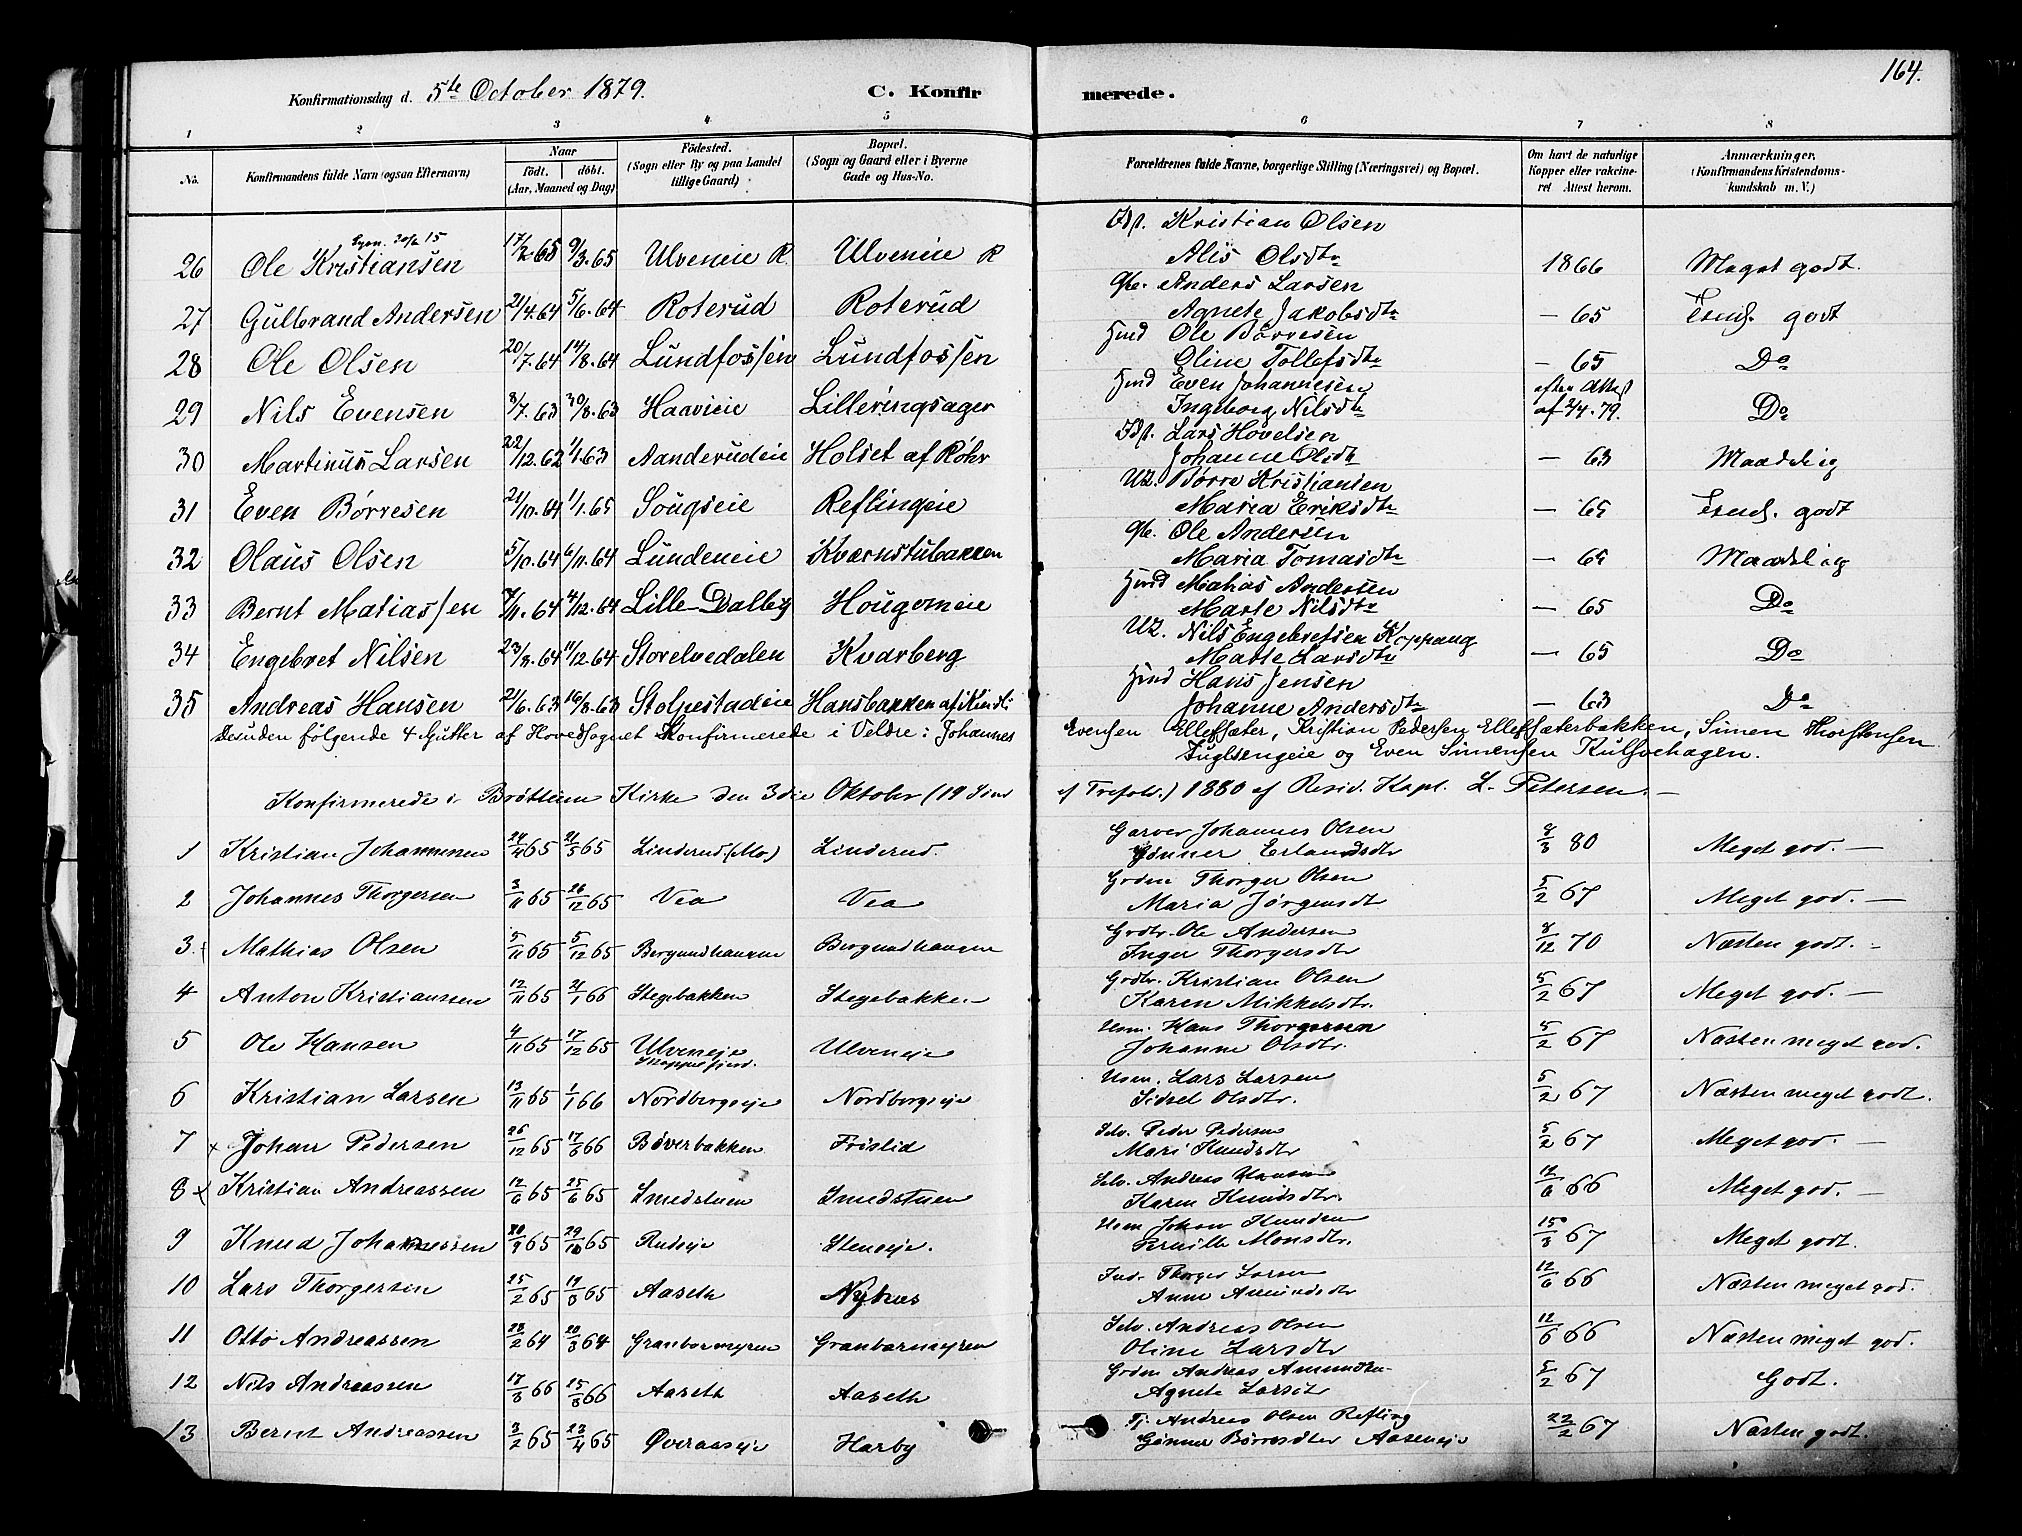 164.
Konfirmationsdag d. 5te October 1879. C. Konfirmerede.
1 2 3 4 5 6 7 8
No. Konfirmandens fulde Navn (ogsaa Efternavn) Naar født. døbt. (Aar, Maaned og Dag) Fødested. (Sogn eller By og paa Landet tillige Gaard) Bopæl. (Sogn og Gaard eller i Byerne Gade og Hus-No. Forældrenes fulde Navne, borgerlige Stilling (Næringsvei) og Bopæl. Om havt de naturlige Kopper eller vakcineret Attest herom. Anmærkninger. (Konfirmandens Kristendomskundskab m. V.)
26 Ole Kristiansen 17/2 65 9/3.65 Ulveneie R. Ulveneie R Kristian Olsen Alis Olsdtr 1866 Meget godt.
27 Gulbrand Andersen 21/4.64 5/6.64 Roterud Roterud Gbr. Anders Larsen Agnete Jakobsdtr — 65 godt
28 Ole Olsen 20/7.64 14/8.64 Lundfossen Lundfossen Ole Børresen Oline Tollefsdtr — 65 Do
29 Nils Evensen 3/7.63 30/8.63 Haavieie Lilleringsager Even Johannesen Ingeborg Nilsdtr efter Attest af 2/4.79. Do
30 Martinus Larsen 22/12.62 1/1.63 Aanderudeie Holset af Røhr Lars Hovelsen Johanne Olsdtr — 63 Maadelig
31 Even Børresen 21/10.64 1/1.65 Sougseie Reflingeie Børre Kristiansen Maria Eriksdtr — 65 godt
32 Olaus Olsen 5/10.64 6/11.64 Lundeneie Kvernstubakken Gbr. Ole Andersen Maria Tomasdtr — 65 Maadelig
33 Bernt Matiassen 7/11.64 4/12.64 Lille-Dalby Hougemeie Matias Andersen Marte Nilsdtr — 65 Do
34 Engebret Nilsen 23/8.64 11/12.64 Storelvedalen Kvarberg Nils Engebretsen Koppang Marte Larsdtr — 65 Do
35 Andreas Hansen 21/6.63 16/8.63 Stolpestadeie Hansbakken af Kindli Hans Jensen Johanne Andersdtr — 63 Do
Desuden følgende 4 Gutter af Hovedsognet Konfirmerede i Veldre: Johannes Evensen Ellefsæter, Kristian Pedersen Ellefsæterbakken, Simen Thorstensen
Fuglsengeie og Even Simensen Kulsvehagen.
Konfirmerede i Brøttum Kirke den 3die Oktober (19 Sønd ef Trefold.) 1880 af Resid. Kapl. L. Petersen. —
1 Kristian Johannesen 24/4 65 21/5 65 Linderud (Mo) Linderud. Garver Johannes Olsen Gunner Erlandsdtr 8/3 80 Meget god. —
2 Johannes Thorgersen 3/11 65 26/12 65 Vea Vea Thorger Olsen Maria Jørgensdtr 5/2 67 Meget god. —
3 Mathias Olsen 5/11 65 5/12 65 Bergundhaugene Bergundhaugene Grdbr. Ole Andersen Inger Thorgersdtr 8/12 70 Næsten godt. -
4 Anton Kristiansen 12/11 65 21/1 66 Stegebakken Stegebakken Grdbr. Kristian Olsen Karen Mikkelsdtr. 5/2 67 Meget god. —
5 Ole Hansen 4/11 65 17/12 65 Ulveneje Ulveneje Husm. Hans Thorgersen Johanne Olsdtr. 5/2 67 Næsten meget god.
6 Kristian Larsen 13/11 65 1/1 66 Nordbergseje Nordbergseje Husm. Lars Larsen Sidsel Olsdtr. 5/2 67 Næsten meget godt.
7 Johan Pedersen 26/12 65 17/3 66 Bøverbakken Frislid Selv. Peder Pedersen Mari Knudsdtr 5/2 67 Meget god. —
8 Kristian Andreassen 12/6 65 25/6 65 Smedstuen Smedstuen Selv. Andreas Hansen Karen Knudsdtr. 12/6 66 Meget god. —
9 Knud Johannessen 20/9 65 29/10 65 Rudseje Steneje. Husm Johan Knudsen Pernille Monsdtr. 15/3 67 Meget godt.
10 Lars Thorgersen 25/2 65 65 Aaseth Nyhus Ind. Thorger Larsen Anne Amundsdtr 12/6 66 Næsten meget god.
11 Otto Andreassen 28/2 64 20/3 64 Granbormyren Granbormyren Selv. Andreas Olsen Oline Larsdtr 12/6 66 Næsten meget god.
12 Nils Andreassen 17/3 66 25/3 66 Aaseth Aaseth Andreas Amundsen Agnete Larsdtr 5/2 67 Godt.
13 Bernt Andreassen 3/2 65 23/4 65 Øveraaseje Harby Tj. Andreas Olsen Refling Gunner Børresdtr Aaseneje 22/2 67 Næsten godt.